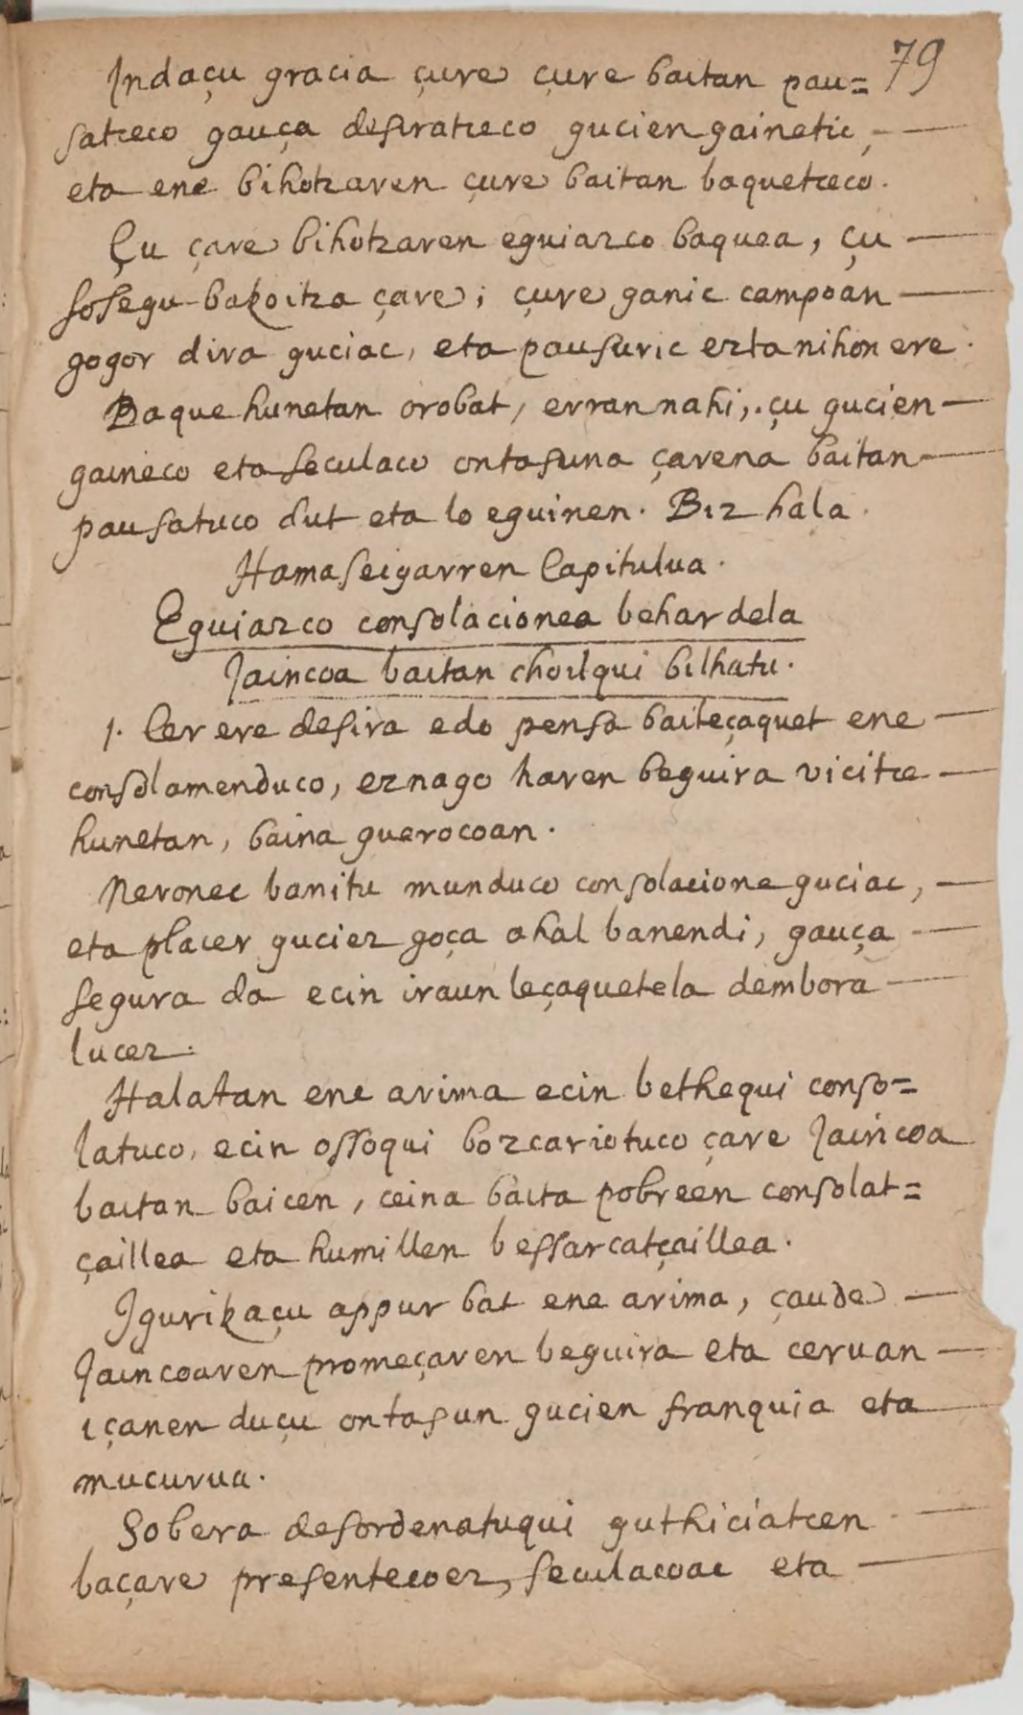 79
Indaçu gracia çure çure baitan pau=
satceco gauça desiratceco gucien gainetic,
eta ene bihotzaren çure baitan baquetceco.
Çu çare bihotzaren eguiazco baquea, çu
sosegu bakoitza çare; çure ganic campoan
gogor dira guciac, eta pausuric ezta nihon ere.
Baque hunetan orobat, erran nahi, çu gucien
gaineco eta seculaco ontasuna çarena baitan
pausatuco dut eta lo eguinen. Biz hala.
Hamaseigarren Capitulua.
Eguiazco consolacionea behar dela
Jaincoa baitan choilqui bilhatu.
1. Cer ere desira edo pensa baiteçaquet ene
consolamenduco, eznago haren beguira vicitce
hunetan, baina guerocoan.
Neronec banitu munduco consolacione guciac,
eta placer guciez goça ahal banendi, gauça
segura da ecin iraun leçaquetela dembora
lucez.
Halatan ene arima ecin bethequi conso=
latuco, ecin ossoqui bozcariotuco çare Jaincoa
baitan baicen, ceina baita pobreen consolat=
çaillea eta humillen bessarcatçaillea.
Igurikaçu appur bat ene arima, çaude
Jaincoaren promeçaren beguira eta ceruan
içanen duçu ontasun gucien franquia eta
mucurua.
Sobera desordenatuqui guthiciatcen
baçare presentecoez, seculacoac eta